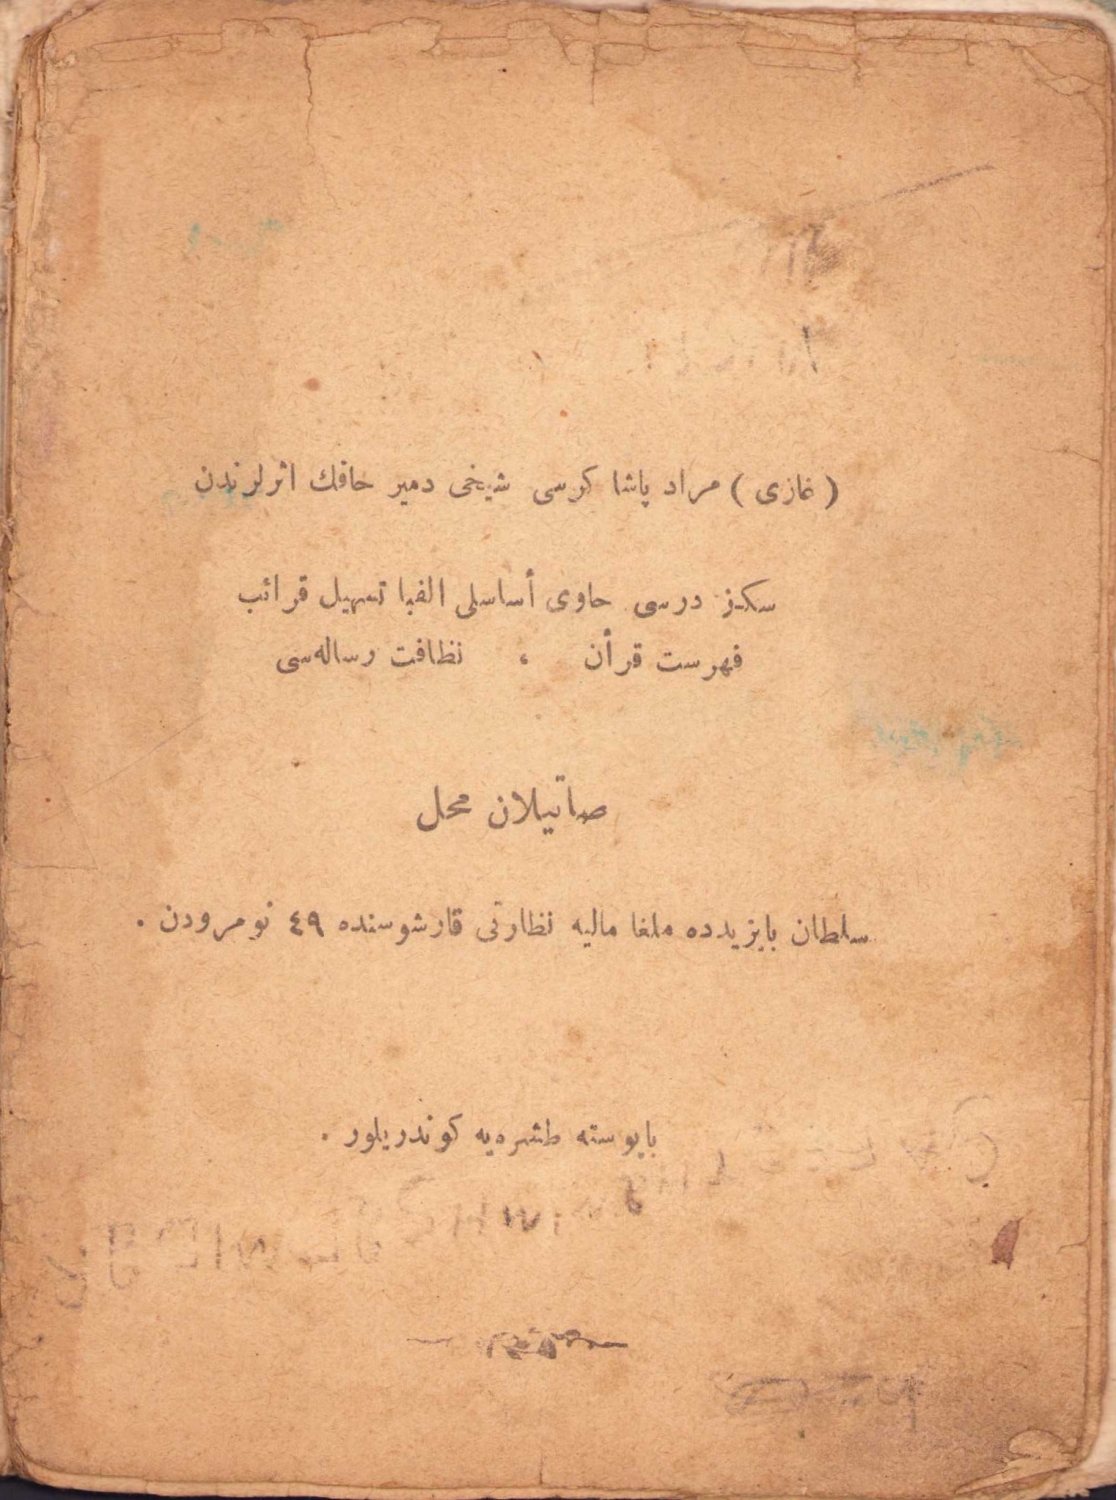 ( غازى ) مراد پاشا كرسى شيخى دمير حافك اثرلرندن
سكز درسى حاوى أساسلى الفبا تسهيل قرائب
فهرست قرأن ، نظافت رساله‌سى
صاتيلان محل
سلطان بايزيدده ملغا ماليه نظارتى قارشوسنده ٤٩ نومرودن .
بايوسته طشره‌يه كوندريلور .